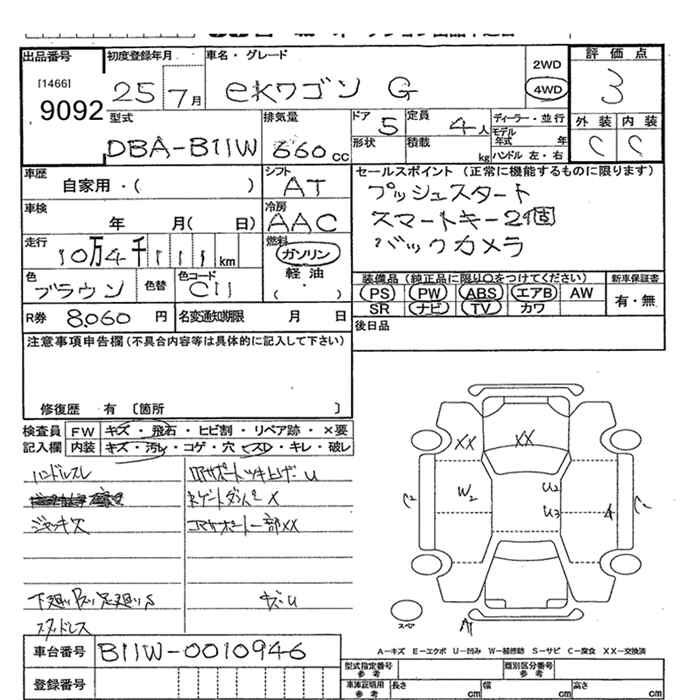 出品番号 初度登録年月 車名・グレード 評価点
[1466]
9092
25 7月 ekワゴン G
2WD
4WD
3
型式 排気量 ドア 定員 ディーラー・並行 外装 内装
DBA-B11W 660cc 5 4人 モデル年式 年 C C
形状 積載 kg ハンドル 左・右
車歴 シフト セールスポイント(正常に機能するものに限ります)
自家用・( ) AT プッシュスタート
車検 冷房 スマートキー2個
年 月( 日) AAC バックカメラ
走行 燃料
10万4千111km ガソリン
軽油
( ・ )
色 色替 色コード 装備品(純正品に限り○をつけてください) 新車保証書
ブラウン C11 PS PW ABS エアB AW 有・無
SR ナビ TV カワ
R券 8060円 名変通知期限 月 日 後日品
注意事項申告欄(不具合内容等は具体的に記入して下さい)
修復歴 有 〔箇所 〕
検査員 FW キズ・飛石・ヒビ割・リペア跡・×要
記入欄 内装 キズ・汚レ・コゲ・穴・スレ・キレ・破レ
ハンドルスレ
ジャッキ欠
コアサポート一部XX
下廻りサビ 足廻りS キズU
スタッドレス
XX XX
W2 U2
U3 A
スペア
A
A-キズ E-エクボ U-凹み W-補修跡 S-サビ C-腐食 XX-交換済
車台番号 B11W-0010946
登録番号
型式指定番号 参考 類別区分番号 参考
車庫証明用 参考 長さ cm 幅 cm 高さ cm